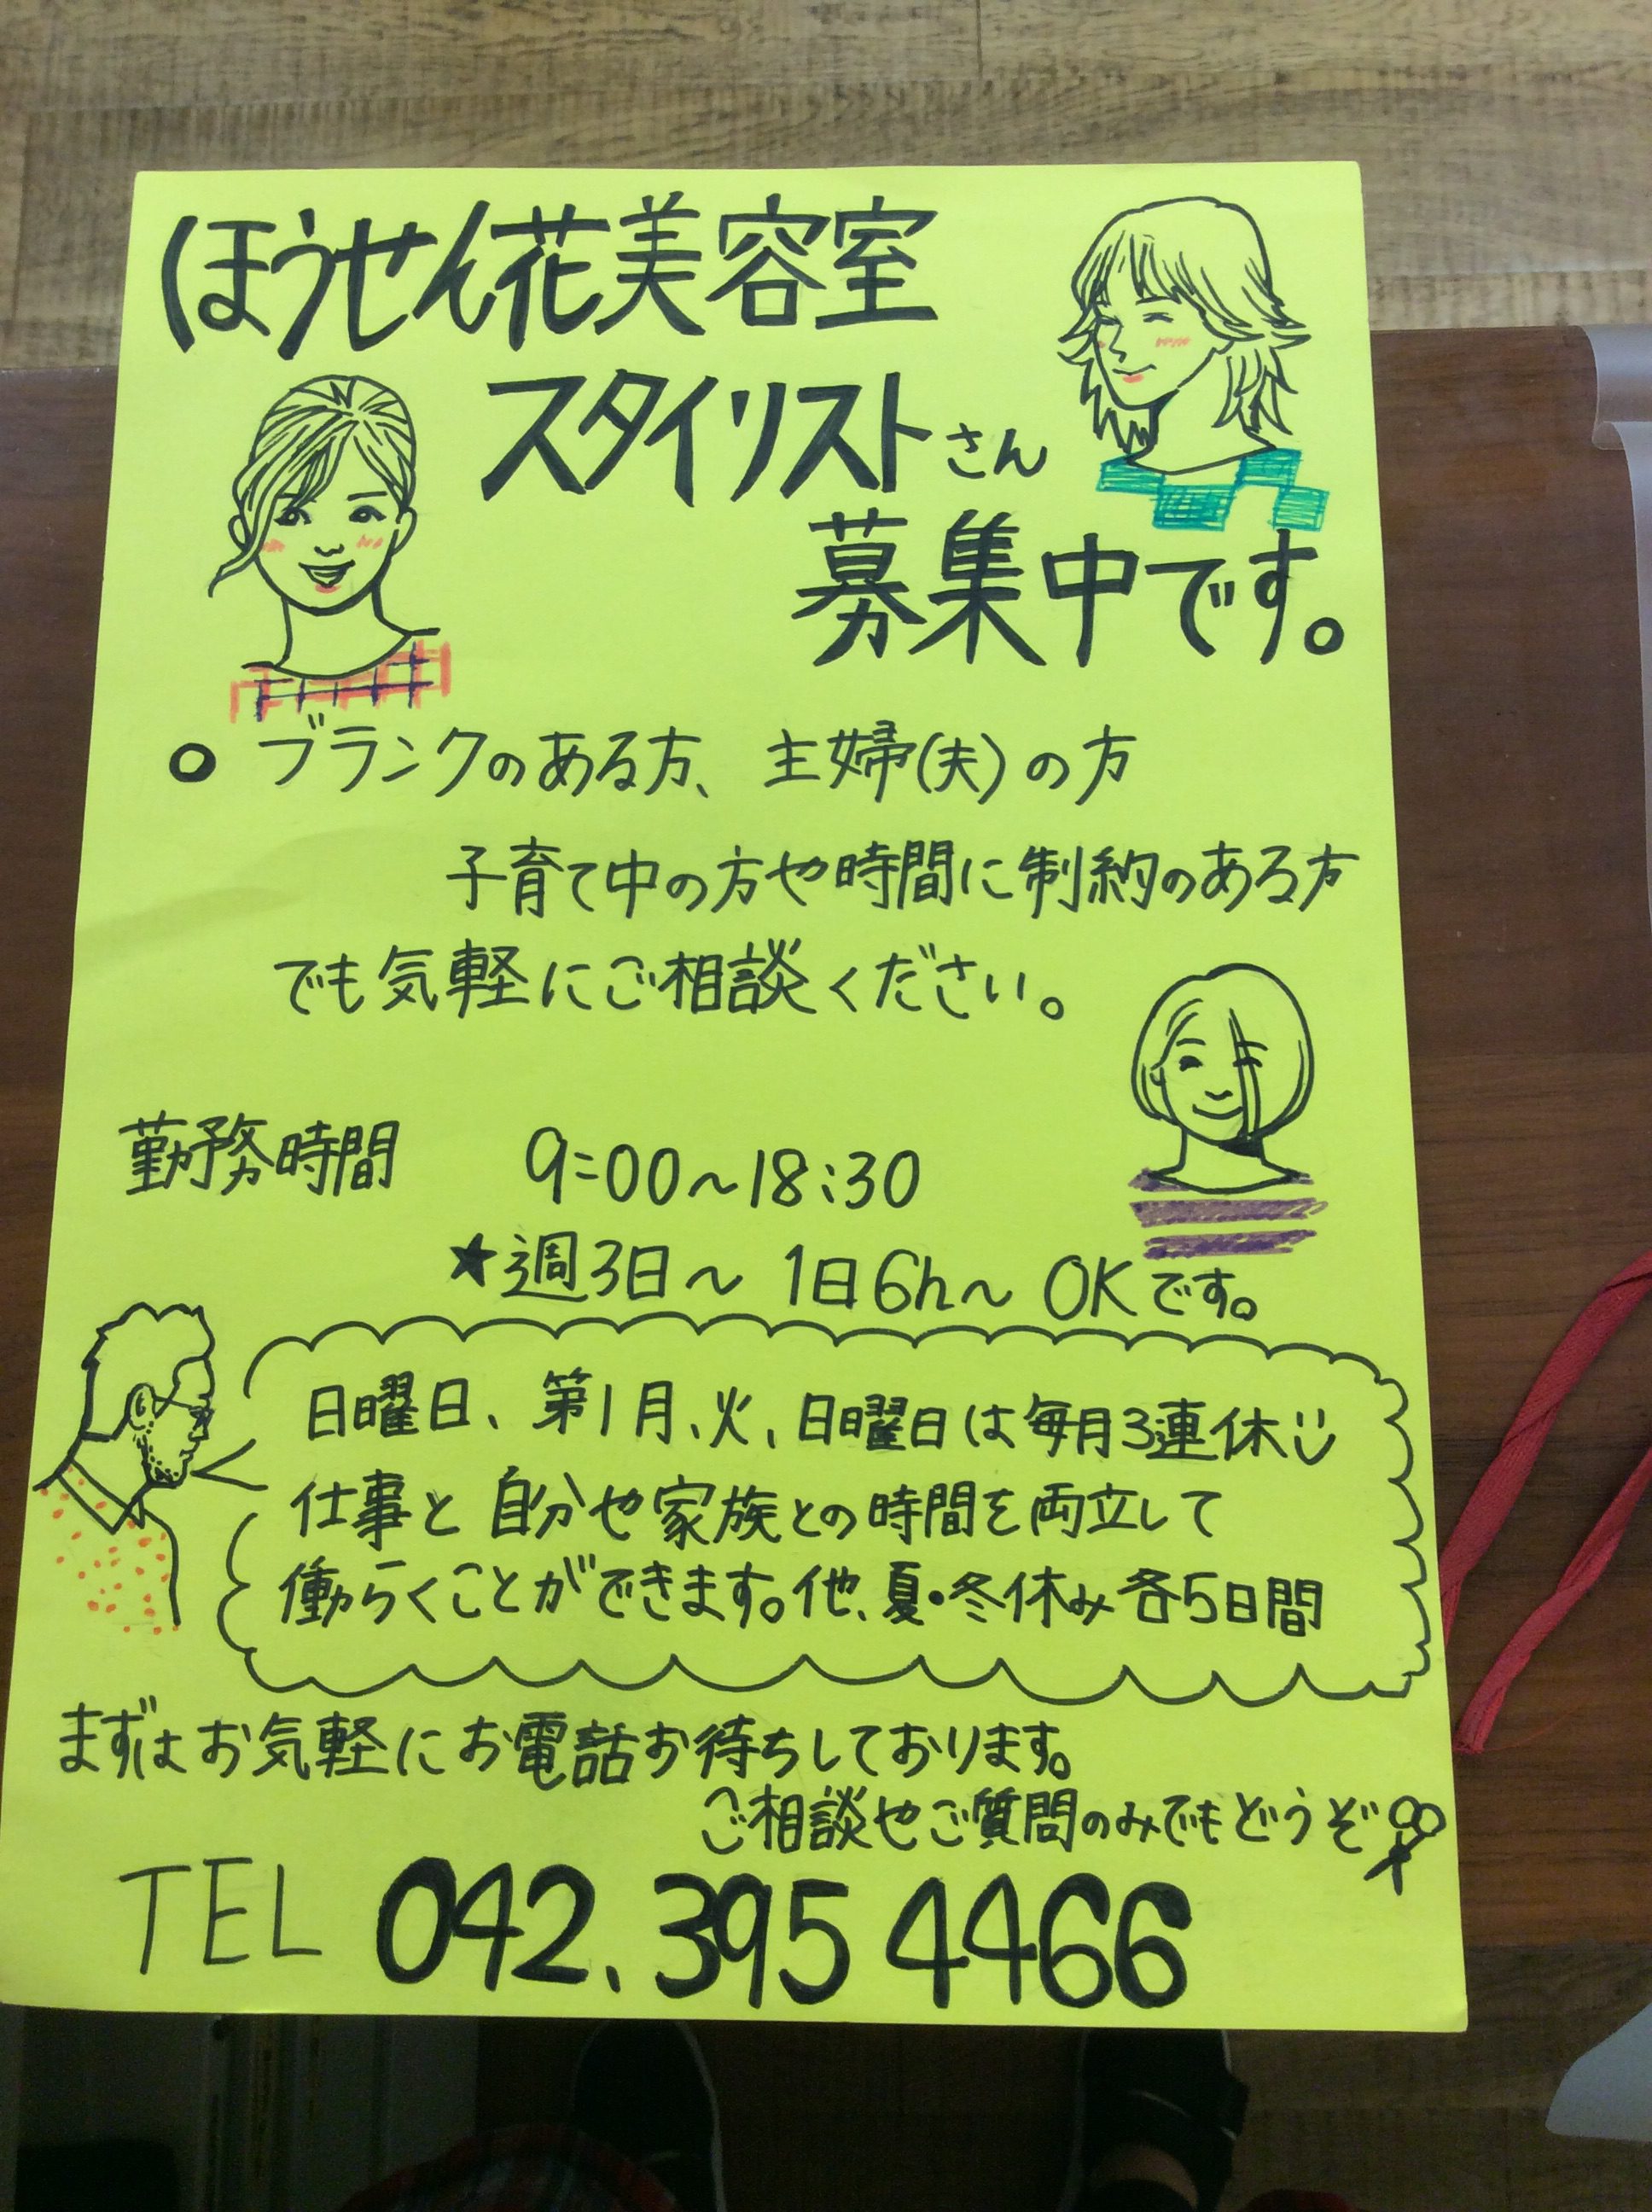 ほうせん花美容室
スタイリストさん
募集中です。
○ ブランクのある方、主婦(夫)の方
子育て中の方や時間に制約のある方
でも気軽にご相談ください。
勤務時間 9:00〜18:30
★週3日〜 1日6h〜 OKです。
日曜日、第1月、火、日曜日は毎月3連休
仕事と自分や家族との時間を両立して
働らくことができます。他、夏・冬休み各5日間
まずはお気軽にお電話お待ちしております。
ご相談やご質問のみでもどうぞ
TEL 042.395 4466